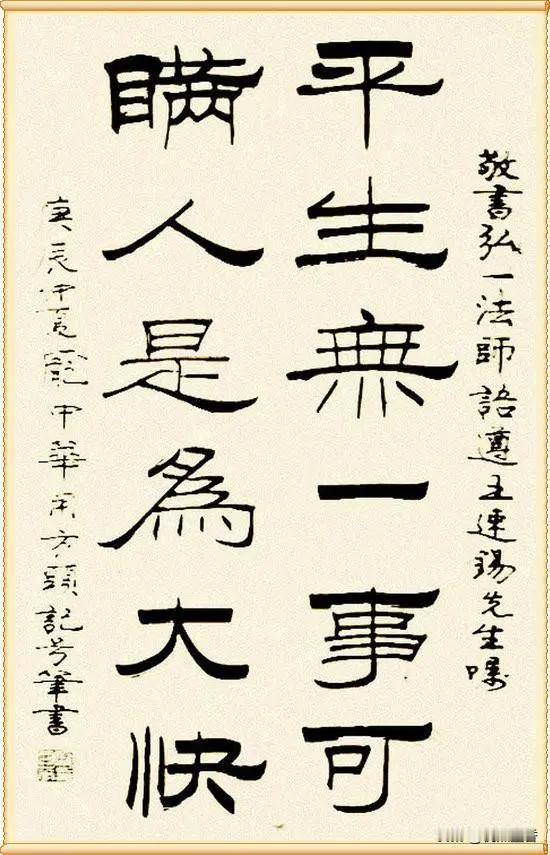 敬書弘一法師語遵王連錫先生囑
平生無一事可
瞞人是為大快
庚辰仲夏 中華 方頭記 筆書